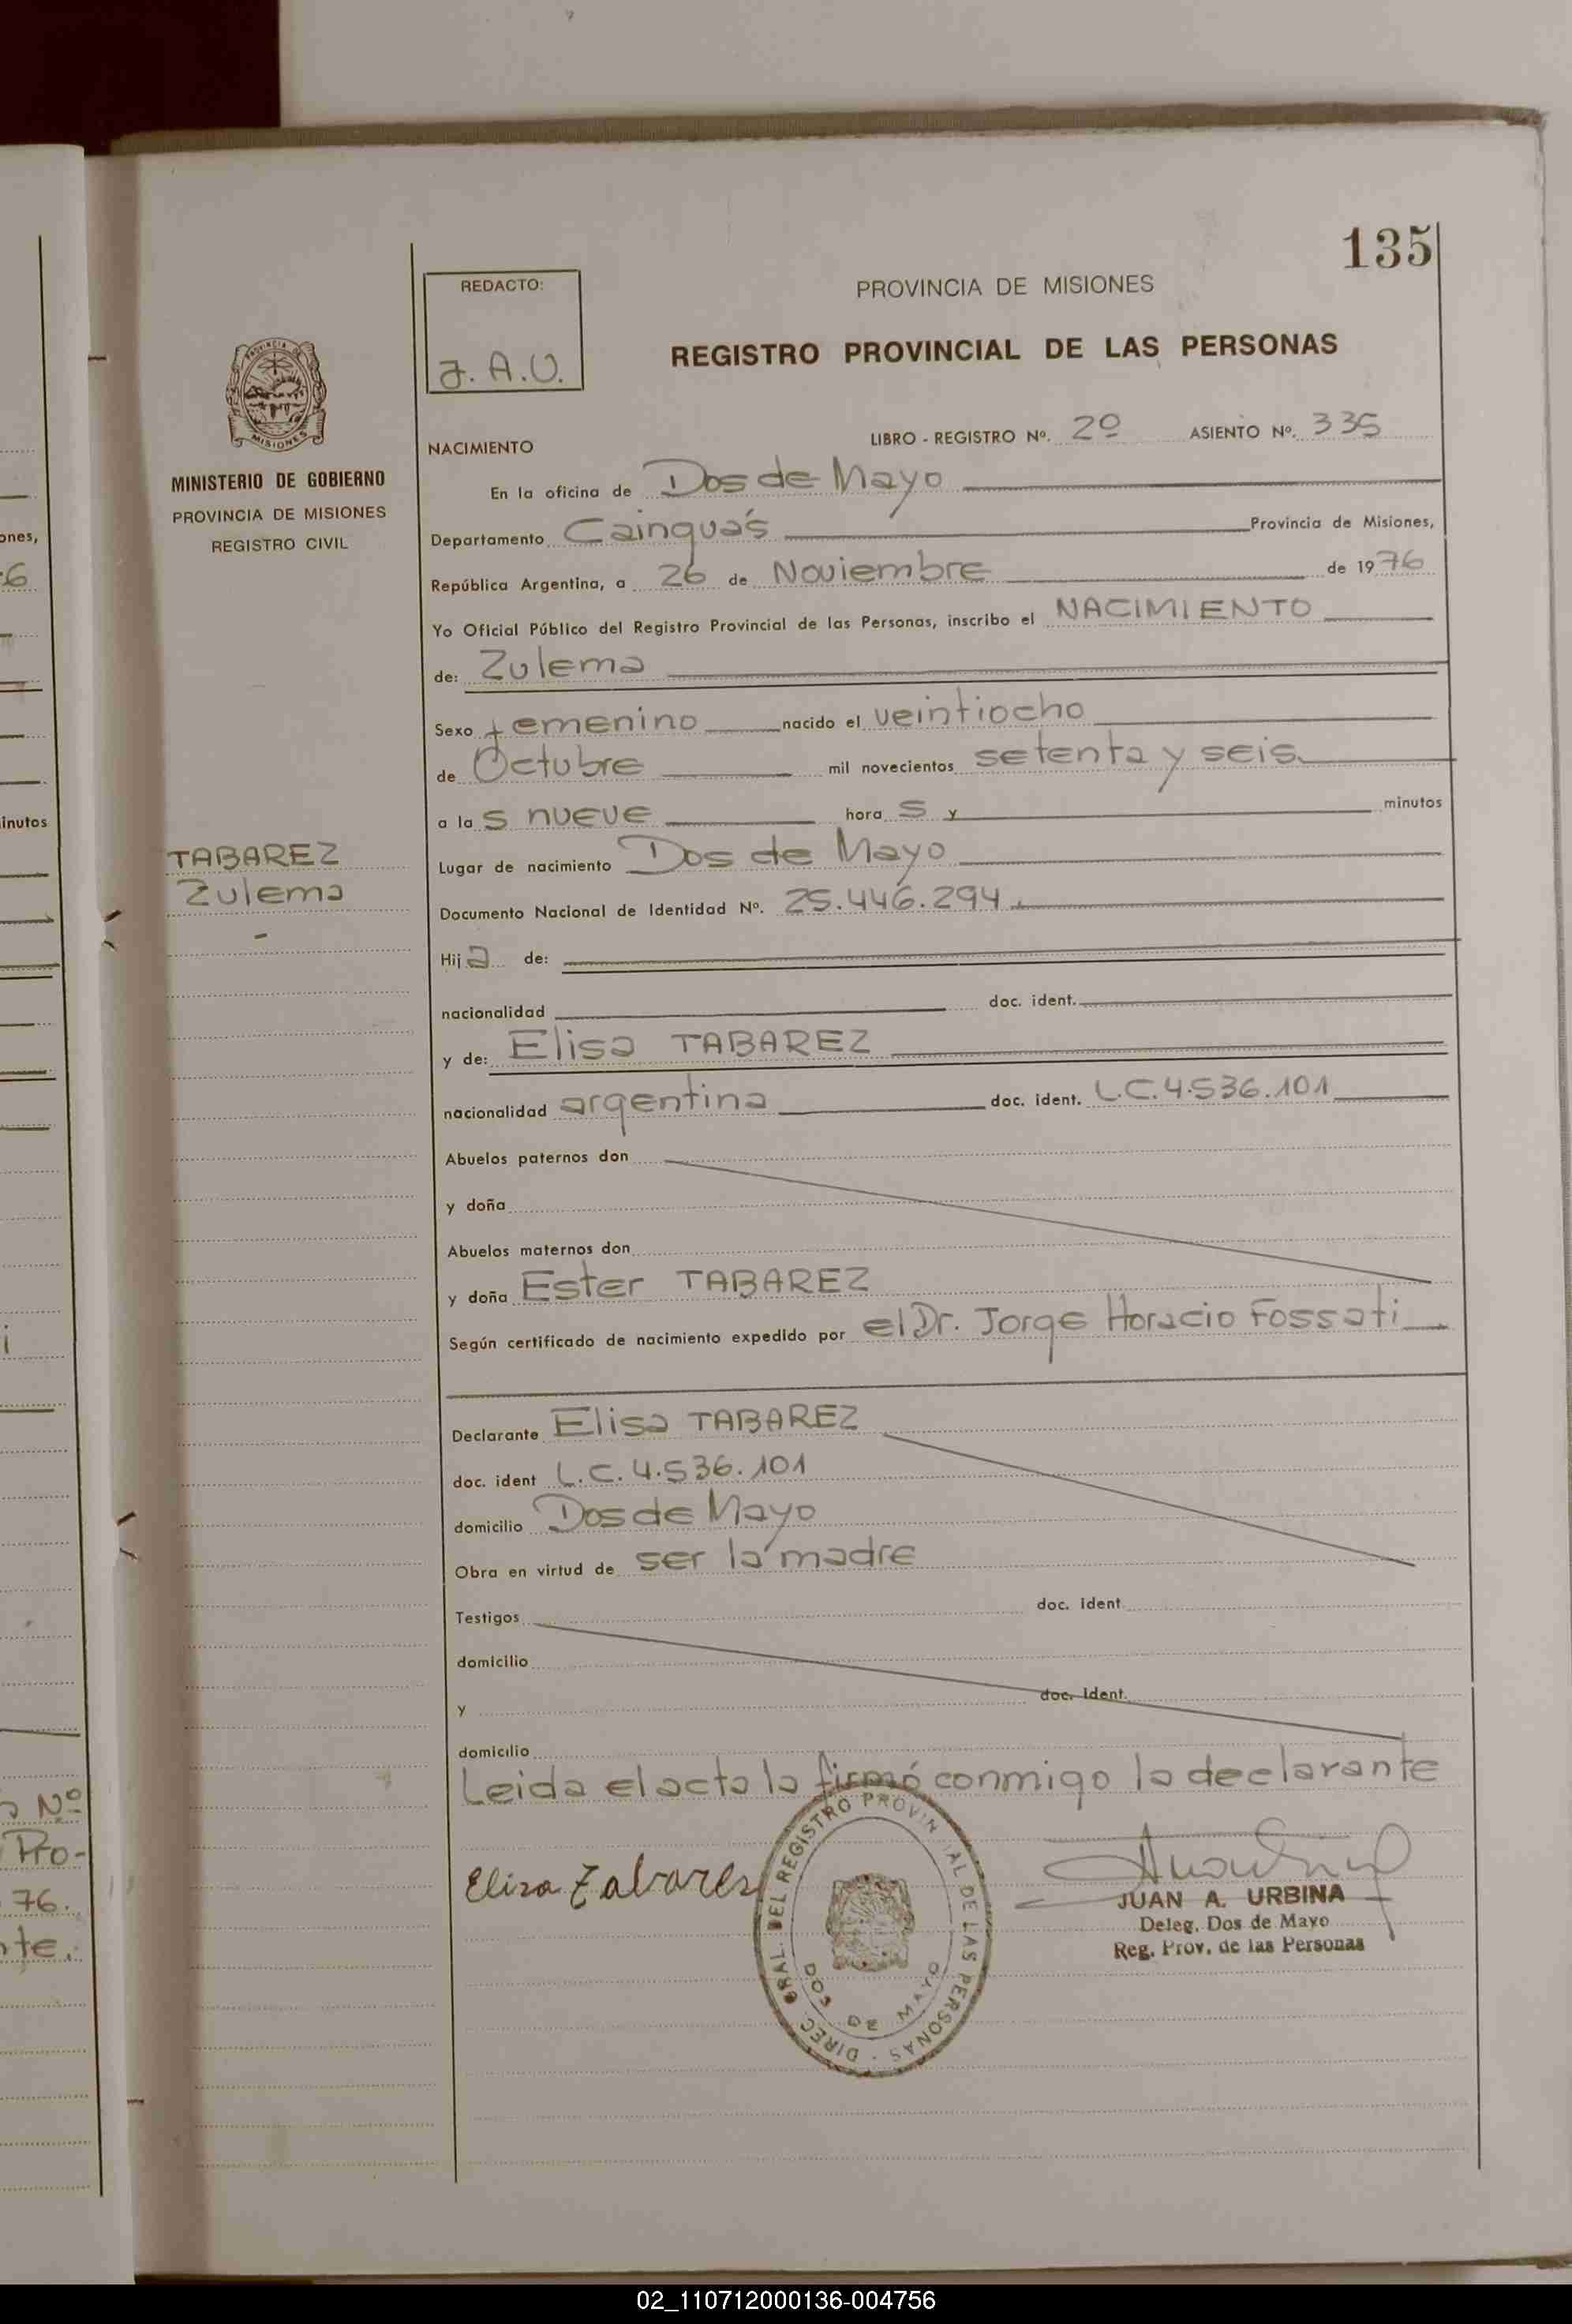 135
REDACTO:
J.A.U.
PROVINCIA DE MISIONES
REGISTRO PROVINCIAL DE LAS PERSONAS
PROVINCIA DE
MISIONES
MINISTERIO DE GOBIERNO
PROVINCIA DE MISIONES
REGISTRO CIVIL
NACIMIENTO LIBRO - REGISTRO Nº. 2º ASIENTO Nº. 335
En la oficina de Dos de Mayo
Departamento Cainguás Provincia de Misiones,
República Argentina, a 26 de Noviembre de 1976
Yo Oficial Público del Registro Provincial de las Personas, inscribo el NACIMIENTO
de: Zulema
Sexo femenino nacido el veintiocho
de Octubre mil novecientos setenta y seis
a las nueve horas y minutos
TABAREZ
Zulema
Lugar de nacimiento Dos de Mayo
Documento Nacional de Identidad Nº. 25.446.294.
Hija de:
nacionalidad doc. ident.
y de: Elisa TABAREZ
nacionalidad argentina doc. ident. L.C.4.536.101
Abuelos paternos don
y doña
Abuelos maternos don
y doña Ester TABAREZ
Según certificado de nacimiento expedido por el Dr. Jorge Horacio Fossati
Declarante Elisa TABAREZ
doc. ident L.C.4.536.101
domicilio Dos de Mayo
Obra en virtud de ser la madre
Testigos doc. ident.
domicilio
y doc. ident.
domicilio
Leida el acta la firmó conmigo la declarante
Elisa Tabares
DIREC. GRAL. DEL REGISTRO PROVINCIAL DE LAS PERSONAS -
DOS DE MAYO
JUAN A. URBINA
Deleg. Dos de Mayo
Reg. Prov. de las Personas
ones,
6
inutos
i
o Nº
Pro-
76.
nte.
02_110712000136-004756